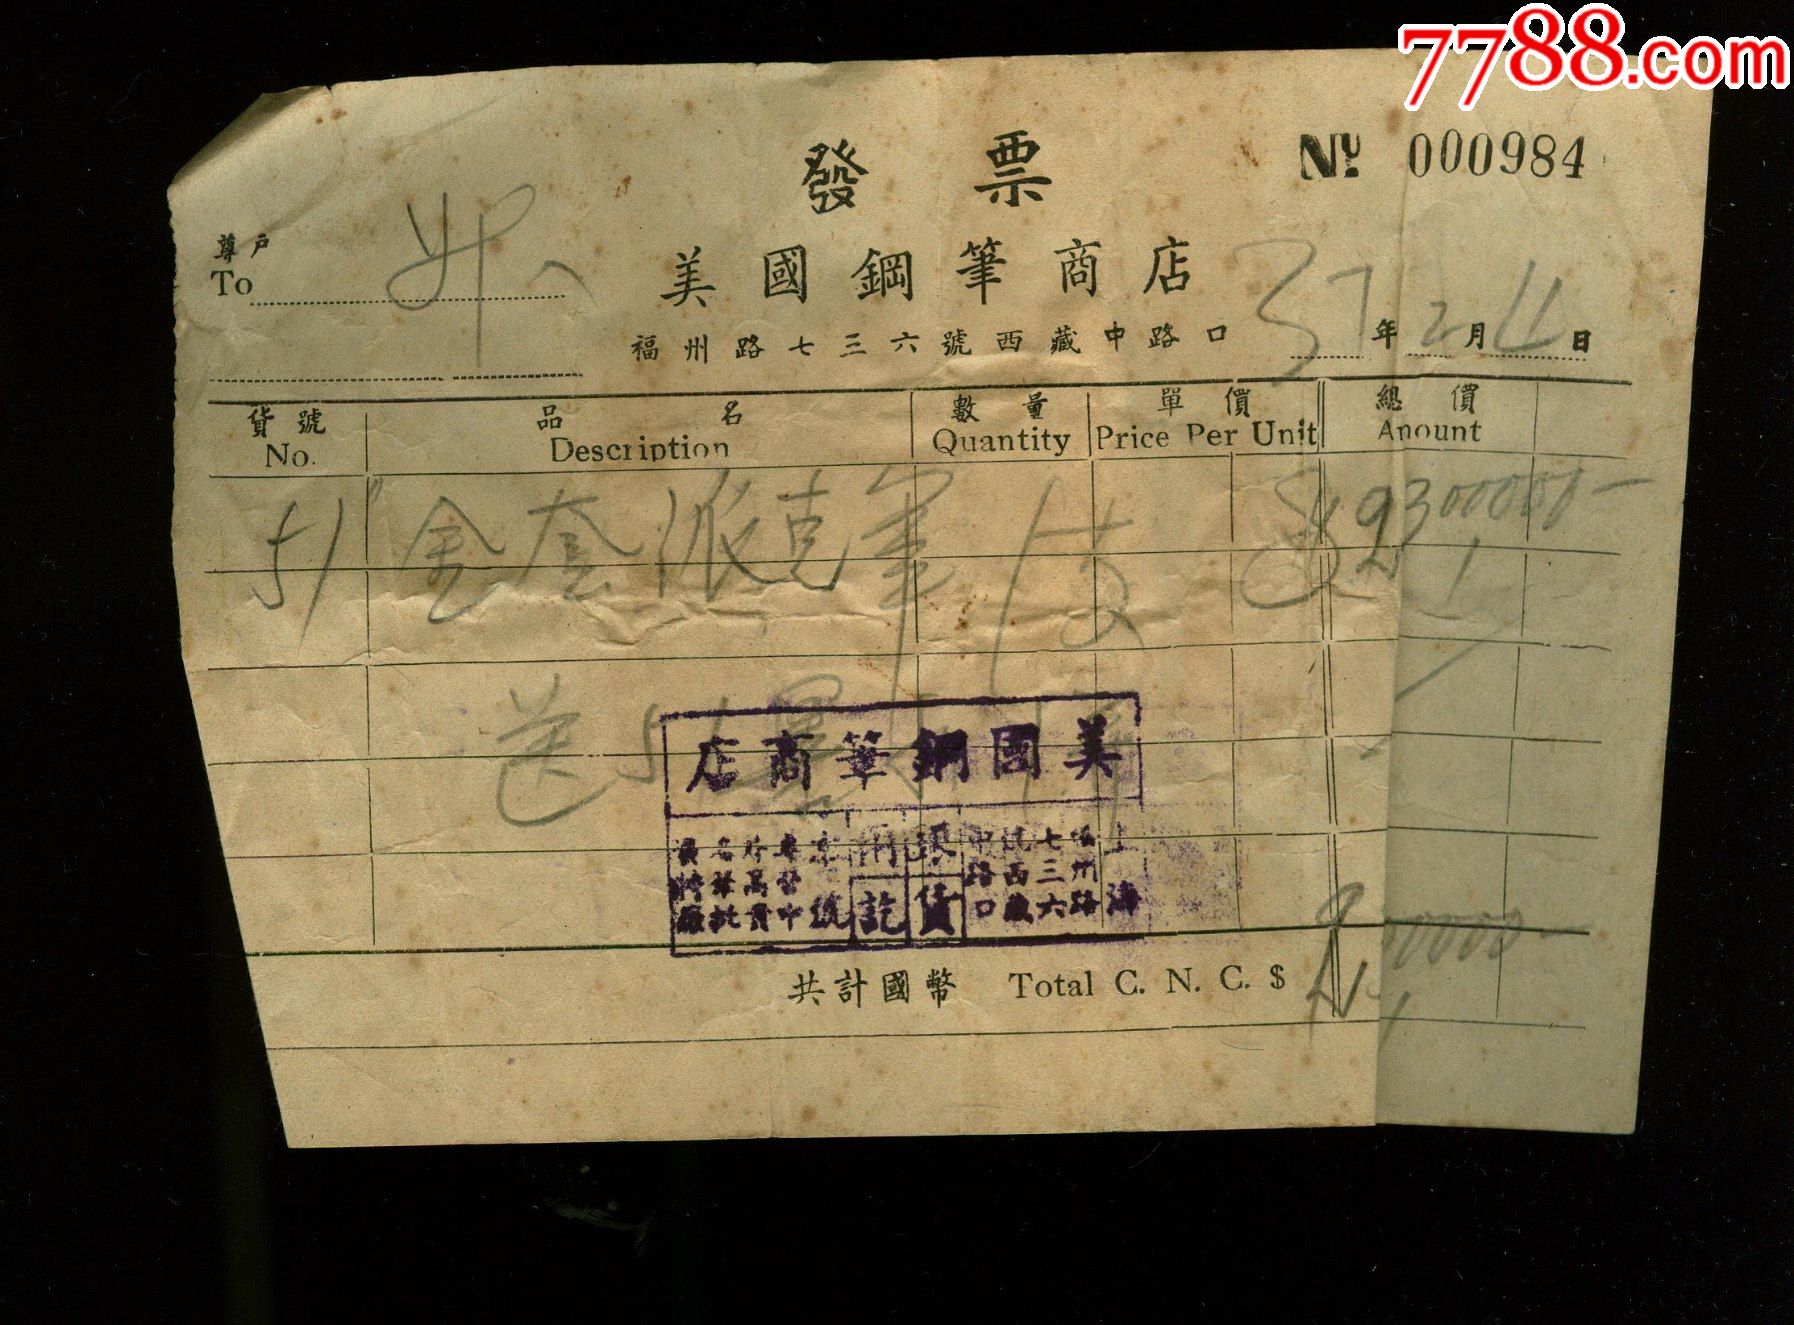 7788.com
發票
No 000984
尊戶
To
美國鋼筆商店
福州路七三六號西藏中路口
37年2月11日
貨號 品名 數量 單價 總價
No. Description Quantity Price Per Unit Amount
51 金套派克筆 1支
送51墨水
美國鋼筆商店
上海
福州路
七三六
號西藏
中路口
銀貨
兩訖
共計國幣 Total C. N. C. $